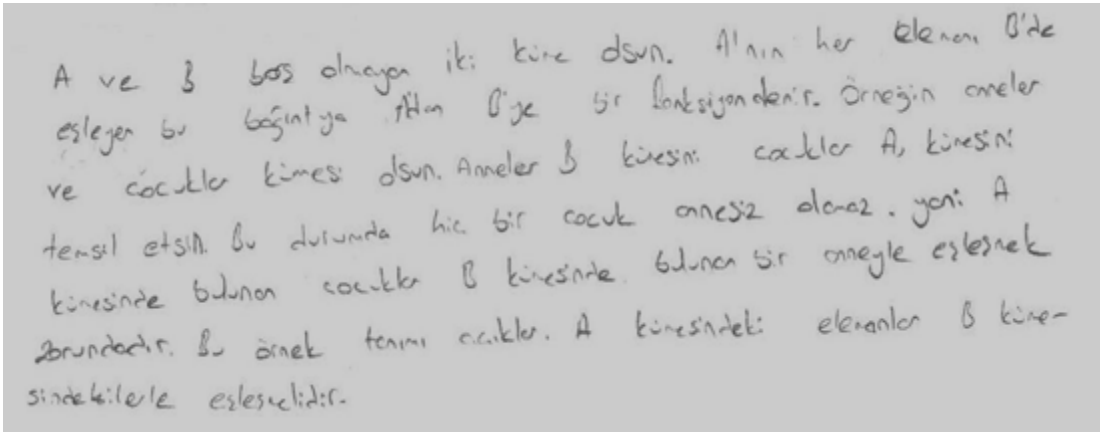 A ve B boş olmayan iki küme olsun. A'nın her elemanı B'de
eşleyen bu bağıntıya A'dan B'ye bir fonksiyon denir. Örneğin anneler
ve çocuklar kümesi olsun. Anneler B kümesini çocuklar A, kümesini
temsil etsin. Bu durumda hiç bir çocuk annesiz olamaz. yani A
kümesinde bulunan çocuklar B kümesinde bulunan bir anneyle eşleşmek
zorundadır. Bu örnek tanımı açıklar. A kümesindeki elemanlar B küme-
sindekilerle eşleşmelidir.